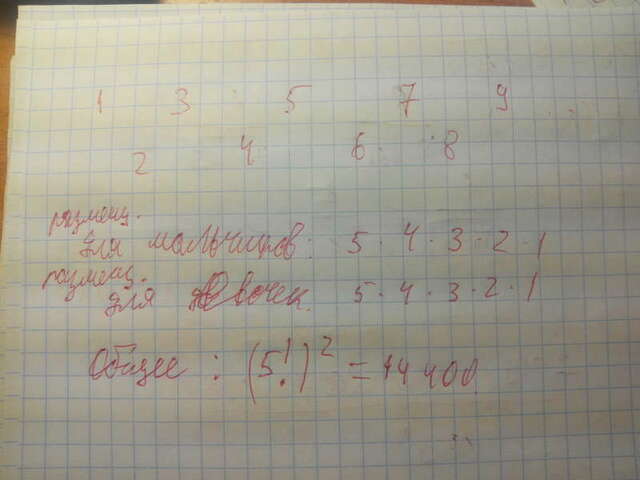 1 3 5 7 9
2 4 6 8
размещ.
для мальчиков: 5 · 4 · 3 · 2 · 1
размещ.
для девочек. 5 · 4 · 3 · 2 · 1
Общее : (5!)² = 14 400